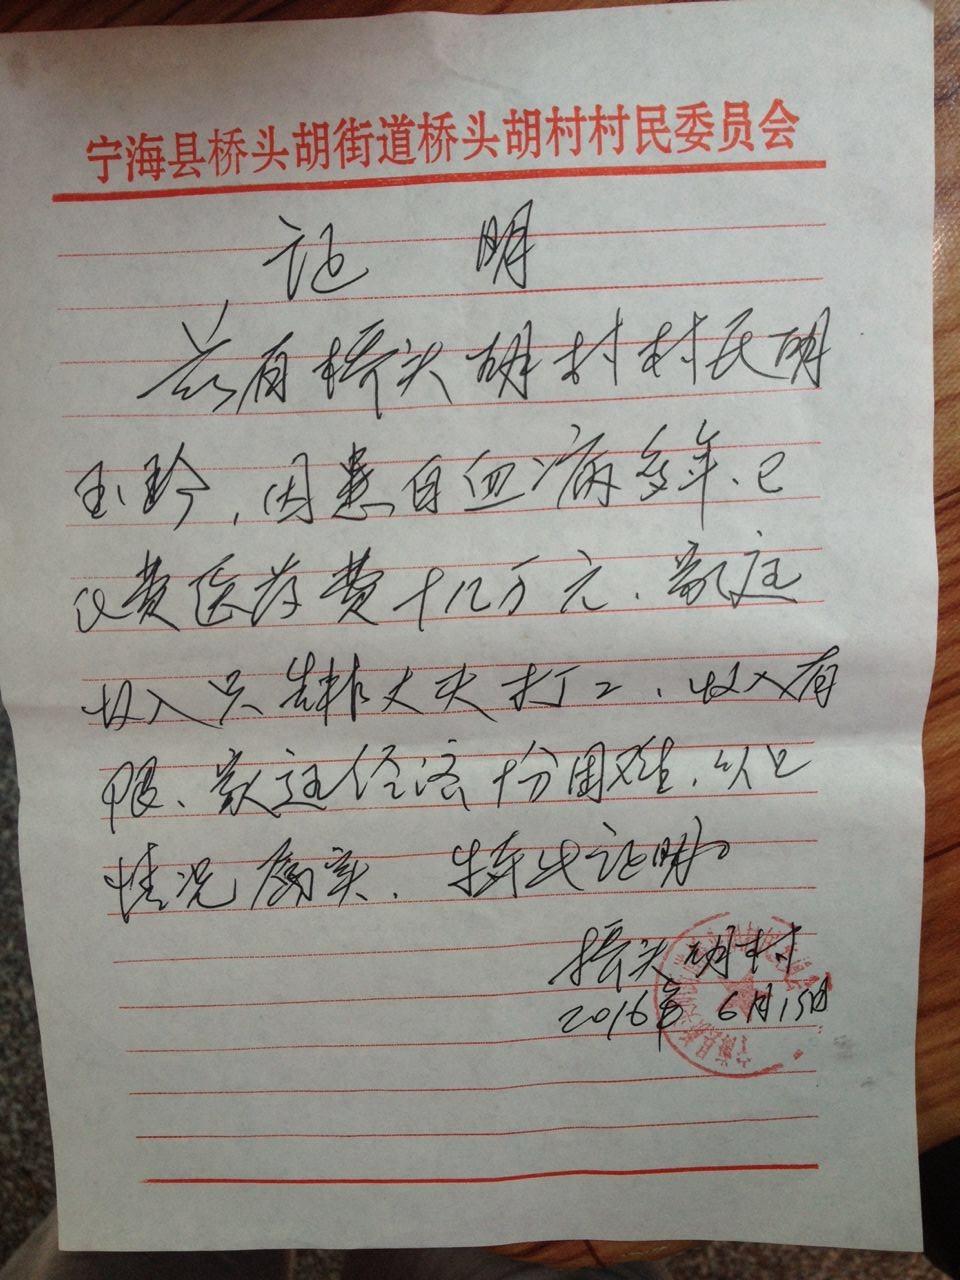 宁海县桥头胡街道桥头胡村村民委员会
证 明
兹有桥头胡村村民胡
玉玲，因患白血病多年、已
收费医药费十几万元、家庭
收入只靠丈夫打工、收入有
限、家庭经济十分困难，以上
情况属实、特此证明
桥头胡村
2016年 6月15日